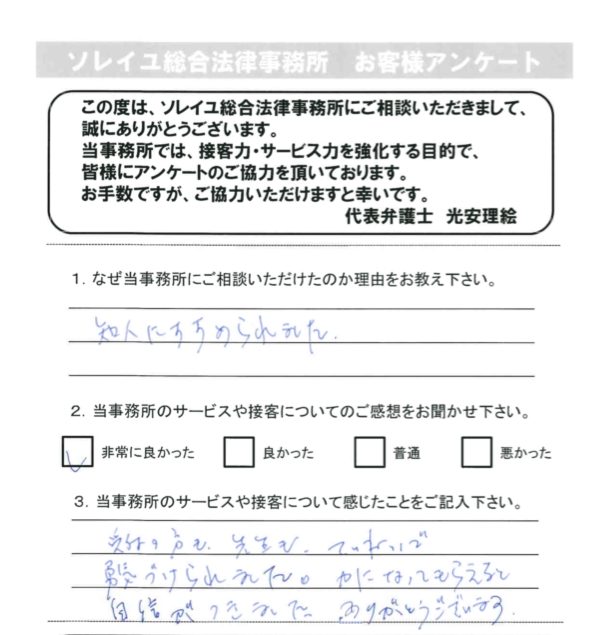 ソレイユ総合法律事務所　お客様アンケート
この度は、ソレイユ総合法律事務所にご相談いただきまして、
誠にありがとうございます。
当事務所では、接客力・サービス力を強化する目的で、
皆様にアンケートのご協力を頂いております。
お手数ですが、ご協力いただけますと幸いです。
代表弁護士　光安理絵
1．なぜ当事務所にご相談いただけたのか理由をお教え下さい。
知人にすすめられました.
2．当事務所のサービスや接客についてのご感想をお聞かせ下さい。
非常に良かった　良かった　普通　悪かった
3．当事務所のサービスや接客について感じたことをご記入下さい。
受付の方も、先生も、ていねいで
勇気づけられました。力になってもらえると
自信がつきました ありがとうございます.